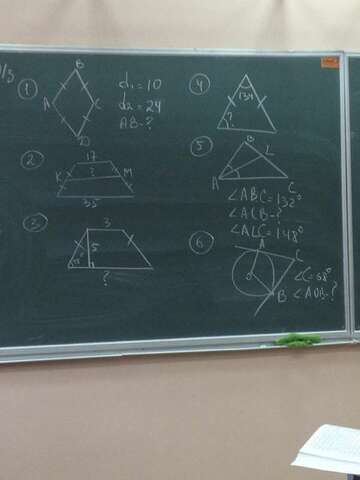 1
B
A
C
D
d₁ = 10
d₂ = 24
AB - ?
2
17
K
?
M
35
3
3
5
45°
?
4
134
?
5
B
L
A
C
∠ABC = 132°
∠ACB - ?
∠ALC = 148°
6
A
C
O
B
∠C = 68°
∠AOB - ?